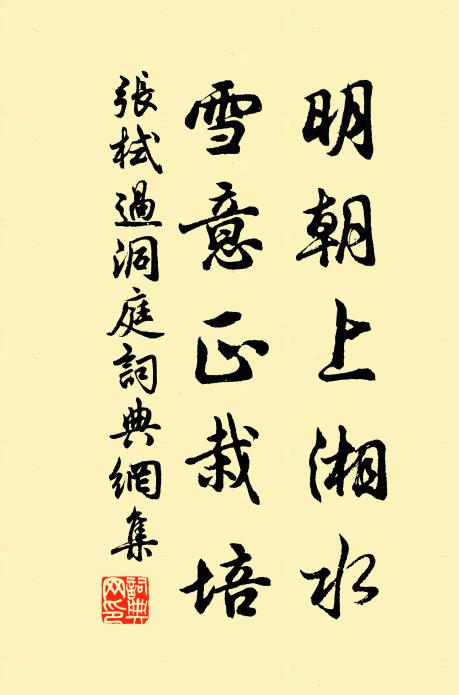 明朝上湘水
雪意正栽培
張栻過洞庭詞典網集
詞典网印